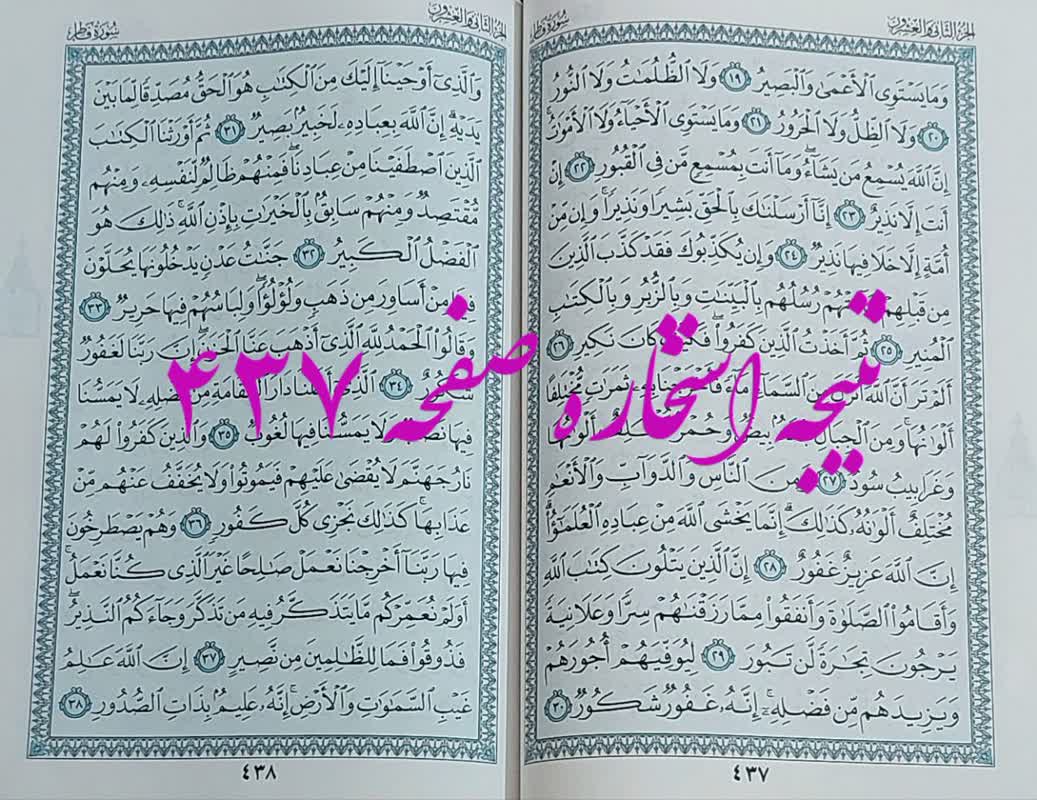 الجزء الثاني والعشرون
سورة فاطر
وَمَا يَسْتَوِى الْأَعْمَىٰ وَالْبَصِيرُ ١٩ وَلَا الظُّلُمَاتُ وَلَا النُّورُ
٢٠ وَلَا الظِّلُّ وَلَا الْحَرُورُ ٢١ وَمَا يَسْتَوِى الْأَحْيَاءُ وَلَا الْأَمْوَاتُ
إِنَّ اللَّهَ يُسْمِعُ مَن يَشَاءُ وَمَا أَنتَ بِمُسْمِعٍ مَّن فِى الْقُبُورِ ٢٢ إِنْ
أَنتَ إِلَّا نَذِيرٌ ٢٣ إِنَّا أَرْسَلْنَاكَ بِالْحَقِّ بَشِيرًا وَنَذِيرًا وَإِن مِّنْ
أُمَّةٍ إِلَّا خَلَا فِيهَا نَذِيرٌ ٢٤ وَإِن يُكَذِّبُوكَ فَقَدْ كَذَّبَ الَّذِينَ
مِن قَبْلِهِمْ رُسُلُهُم بِالْبَيِّنَاتِ وَبِالزُّبُرِ وَبِالْكِتَابِ
الْمُنِيرِ ٢٥ ثُمَّ أَخَذْتُ الَّذِينَ كَفَرُوا كَانَ نَكِيرِ ٢٦
أَلَمْ تَرَ أَنَّ اللَّهَ أَنزَلَ مِنَ السَّمَاءِ مَاءً ثَمَرَاتٍ مُّخْتَلِفًا
أَلْوَانُهَا وَمِنَ الْجِبَالِ بِيضٌ وَحُمْرٌ أَلْوَانُهَا
وَغَرَابِيبُ سُودٌ ٢٧ وَمِنَ النَّاسِ وَالدَّوَابِّ وَالْأَنْعَامِ
مُخْتَلِفٌ أَلْوَانُهُ كَذَٰلِكَ إِنَّمَا يَخْشَى اللَّهَ مِنْ عِبَادِهِ الْعُلَمَاءُ
إِنَّ اللَّهَ عَزِيزٌ غَفُورٌ ٢٨ إِنَّ الَّذِينَ يَتْلُونَ كِتَابَ اللَّهِ
وَأَقَامُوا الصَّلَاةَ وَأَنفَقُوا مِمَّا رَزَقْنَاهُمْ سِرًّا وَعَلَانِيَةً
يَرْجُونَ تِجَارَةً لَّن تَبُورَ ٢٩ لِيُوَفِّيَهُمْ أُجُورَهُمْ
وَيَزِيدَهُم مِّن فَضْلِهِ إِنَّهُ غَفُورٌ شَكُورٌ ٣٠
٤٣٧
الجزء الثاني والعشرون
سورة فاطر
وَالَّذِى أَوْحَيْنَا إِلَيْكَ مِنَ الْكِتَابِ هُوَ الْحَقُّ مُصَدِّقًا لِّمَا بَيْنَ
يَدَيْهِ إِنَّ اللَّهَ بِعِبَادِهِ لَخَبِيرٌ بَصِيرٌ ٣١ ثُمَّ أَوْرَثْنَا الْكِتَابَ
الَّذِينَ اصْطَفَيْنَا مِنْ عِبَادِنَا فَمِنْهُمْ ظَالِمٌ لِّنَفْسِهِ وَمِنْهُم
مُّقْتَصِدٌ وَمِنْهُمْ سَابِقٌ بِالْخَيْرَاتِ بِإِذْنِ اللَّهِ ذَٰلِكَ هُوَ
الْفَضْلُ الْكَبِيرُ ٣٢ جَنَّاتُ عَدْنٍ يَدْخُلُونَهَا يُحَلَّوْنَ
فِيهَا مِنْ أَسَاوِرَ مِن ذَهَبٍ وَلُؤْلُؤًا وَلِبَاسُهُمْ فِيهَا حَرِيرٌ ٣٣
وَقَالُوا الْحَمْدُ لِلَّهِ الَّذِى أَذْهَبَ عَنَّا الْحَزَنَ إِنَّ رَبَّنَا لَغَفُورٌ
شَكُورٌ ٣٤ الَّذِى أَحَلَّنَا دَارَ الْمُقَامَةِ مِن فَضْلِهِ لَا يَمَسُّنَا
فِيهَا نَصَبٌ وَلَا يَمَسُّنَا فِيهَا لُغُوبٌ ٣٥ وَالَّذِينَ كَفَرُوا لَهُمْ
نَارُ جَهَنَّمَ لَا يُقْضَىٰ عَلَيْهِمْ فَيَمُوتُوا وَلَا يُخَفَّفُ عَنْهُم مِّنْ
عَذَابِهَا كَذَٰلِكَ نَجْزِى كُلَّ كَفُورٍ ٣٦ وَهُمْ يَصْطَرِخُونَ
فِيهَا رَبَّنَا أَخْرِجْنَا نَعْمَلْ صَالِحًا غَيْرَ الَّذِى كُنَّا نَعْمَلُ
أَوَلَمْ نُعَمِّرْكُم مَّا يَتَذَكَّرُ فِيهِ مَن تَذَكَّرَ وَجَاءَكُمُ النَّذِيرُ
فَذُوقُوا فَمَا لِلظَّالِمِينَ مِن نَّصِيرٍ ٣٧ إِنَّ اللَّهَ عَالِمُ
غَيْبِ السَّمَاوَاتِ وَالْأَرْضِ إِنَّهُ عَلِيمٌ بِذَاتِ الصُّدُورِ ٣٨
٤٣٨
نتیجه استخاره صفحه ۴۳۷